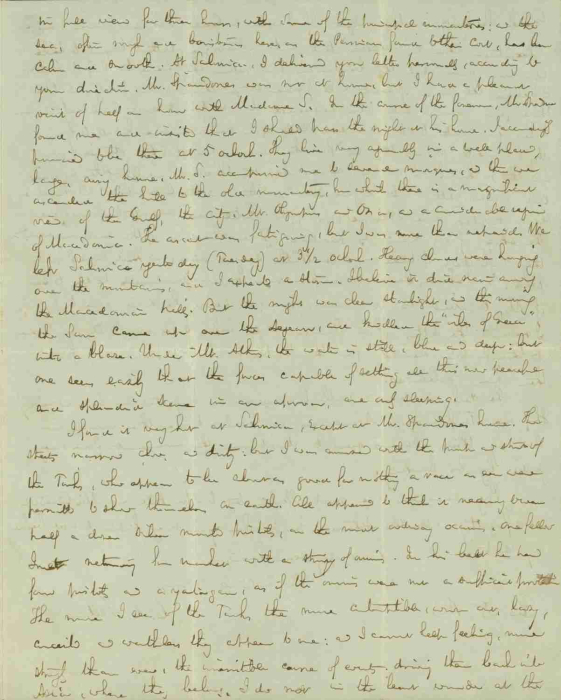 in full view for three hours, with some of the principal commentaries: and the
sea, often rough and boisterous here, as the Parnassian
calm and smooth. At Salonica, I delivered your letter personally, according to
your direction. Mr. Spandonis was not at home, but I had a pleasant
visit of half an hour with Madame S. In the course of the forenoon, Mr. Spandonis
found me and insisted that I should pass the night at his house. I accordingly
promised to be there at 5 o'clock. They live very agreeably in a well placed,
large, airy house. Mr. S. accompanied me to several mosques, and then we
ascended the hill to the old monastery, from which there is a magnificent
view of the Gulf, the city, Mt. Olympus and Ossa, and a considerable region
of Macedonia. The ascent was fatiguing, but I was more than rewarded. We
left Salonica yesterday (Tuesday) at 3 1/2 o'clock. Heavy clouds were hanging
over the mountains, and I expected a storm. I believe it did rain among
the Macedonian hills. But the night was clear starlight, and this morning
the Sun came up over the Aegean, and kindled the "isles of Greece",
into a blaze. Under Mt. Athos, the water is still, blue and deep: but
one sees easily that the forces capable of setting all this in
and splendid scene in an uproar, are only sleeping.
I found it very hot at Salonica, except at Mr. Spandonis' house. The
streets narrow, close, and dirty: but I was amused with the
the Turks, who appear to be about as good for nothing a race as ever were
permitted to show themselves on earth. All appeared to think it necessary to wear
half a dozen silver mounted pistols, on the most ordinary occasions, one fellow
I met returning from market with a string of onions. In his belt he had
four pistols and a yataghan, as if the onions were not a sufficient protection.
The more I see of the Turks the more contemptible, lazy,
conceited and worthless they appear to me: and I cannot help feeling, more
strongly than ever, the inevitable course of events, driving them back into
Asia, where they belong. I do not in the least wonder at the